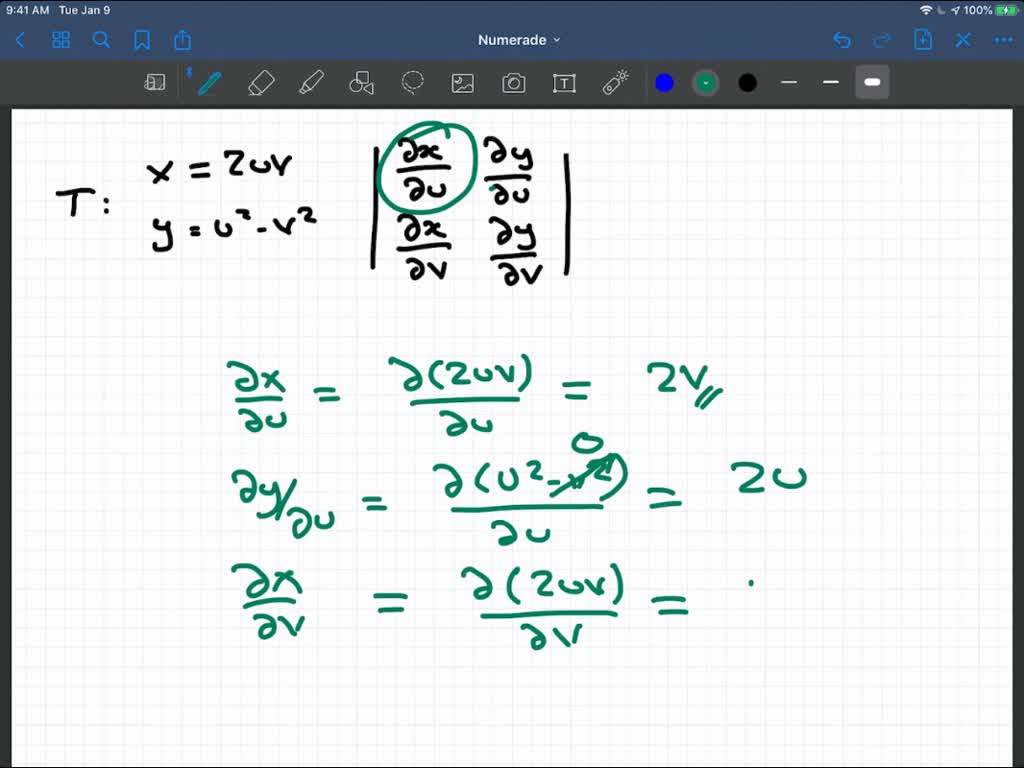 9:41 AM Tue Jan 9
100%
Numerade
T
T: x = 2uv
y = u² - v²
| ∂x/∂u ∂y/∂u |
| ∂x/∂v ∂y/∂v |
∂x/∂u = ∂(2uv)/∂u = 2v
0
∂y/∂u = ∂(u² - v²)/∂u = 2u
∂x/∂v = ∂(2uv)/∂v =